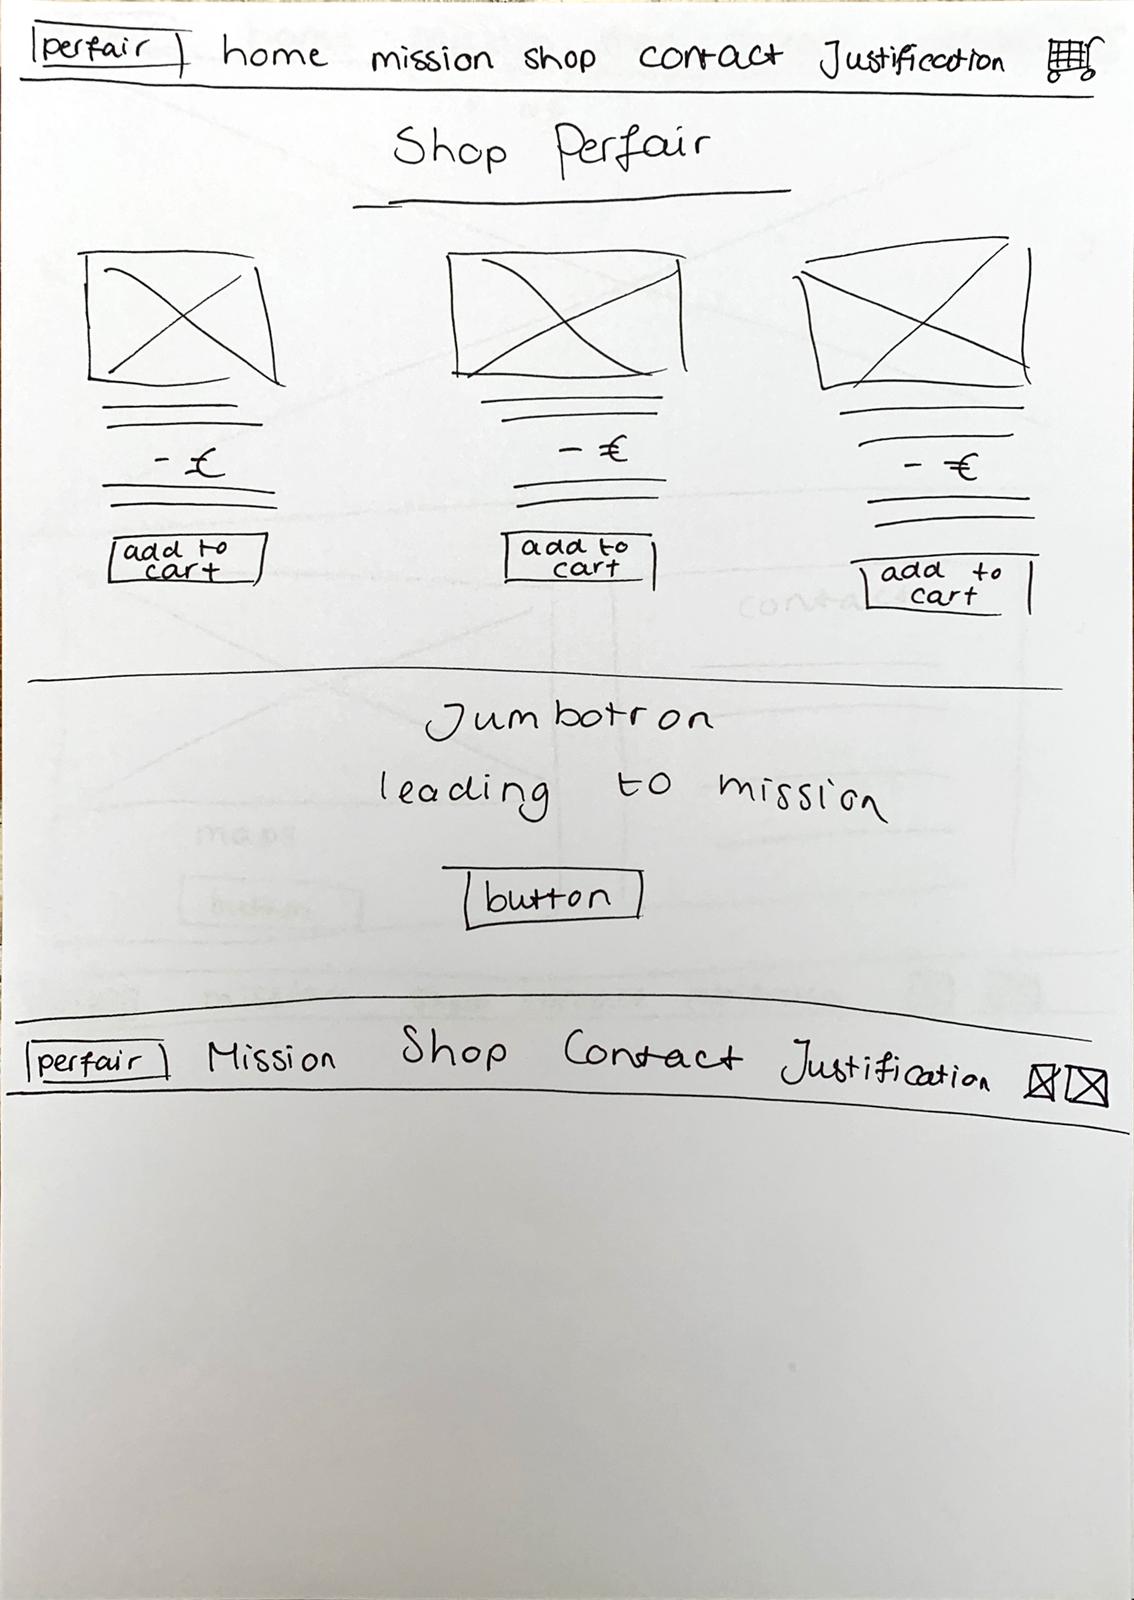 perfair home mission shop contact Justification
Shop Perfair
- € - € - €
add to cart
add to cart
add to cart
Jumbotron
leading to mission
button
perfair Mission Shop Contact Justification
contact
maps
button